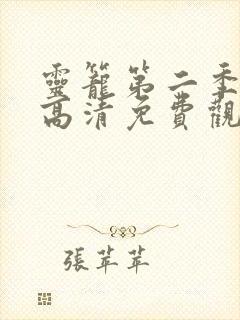 靈籠第二季
高清免費觀
張苹苹